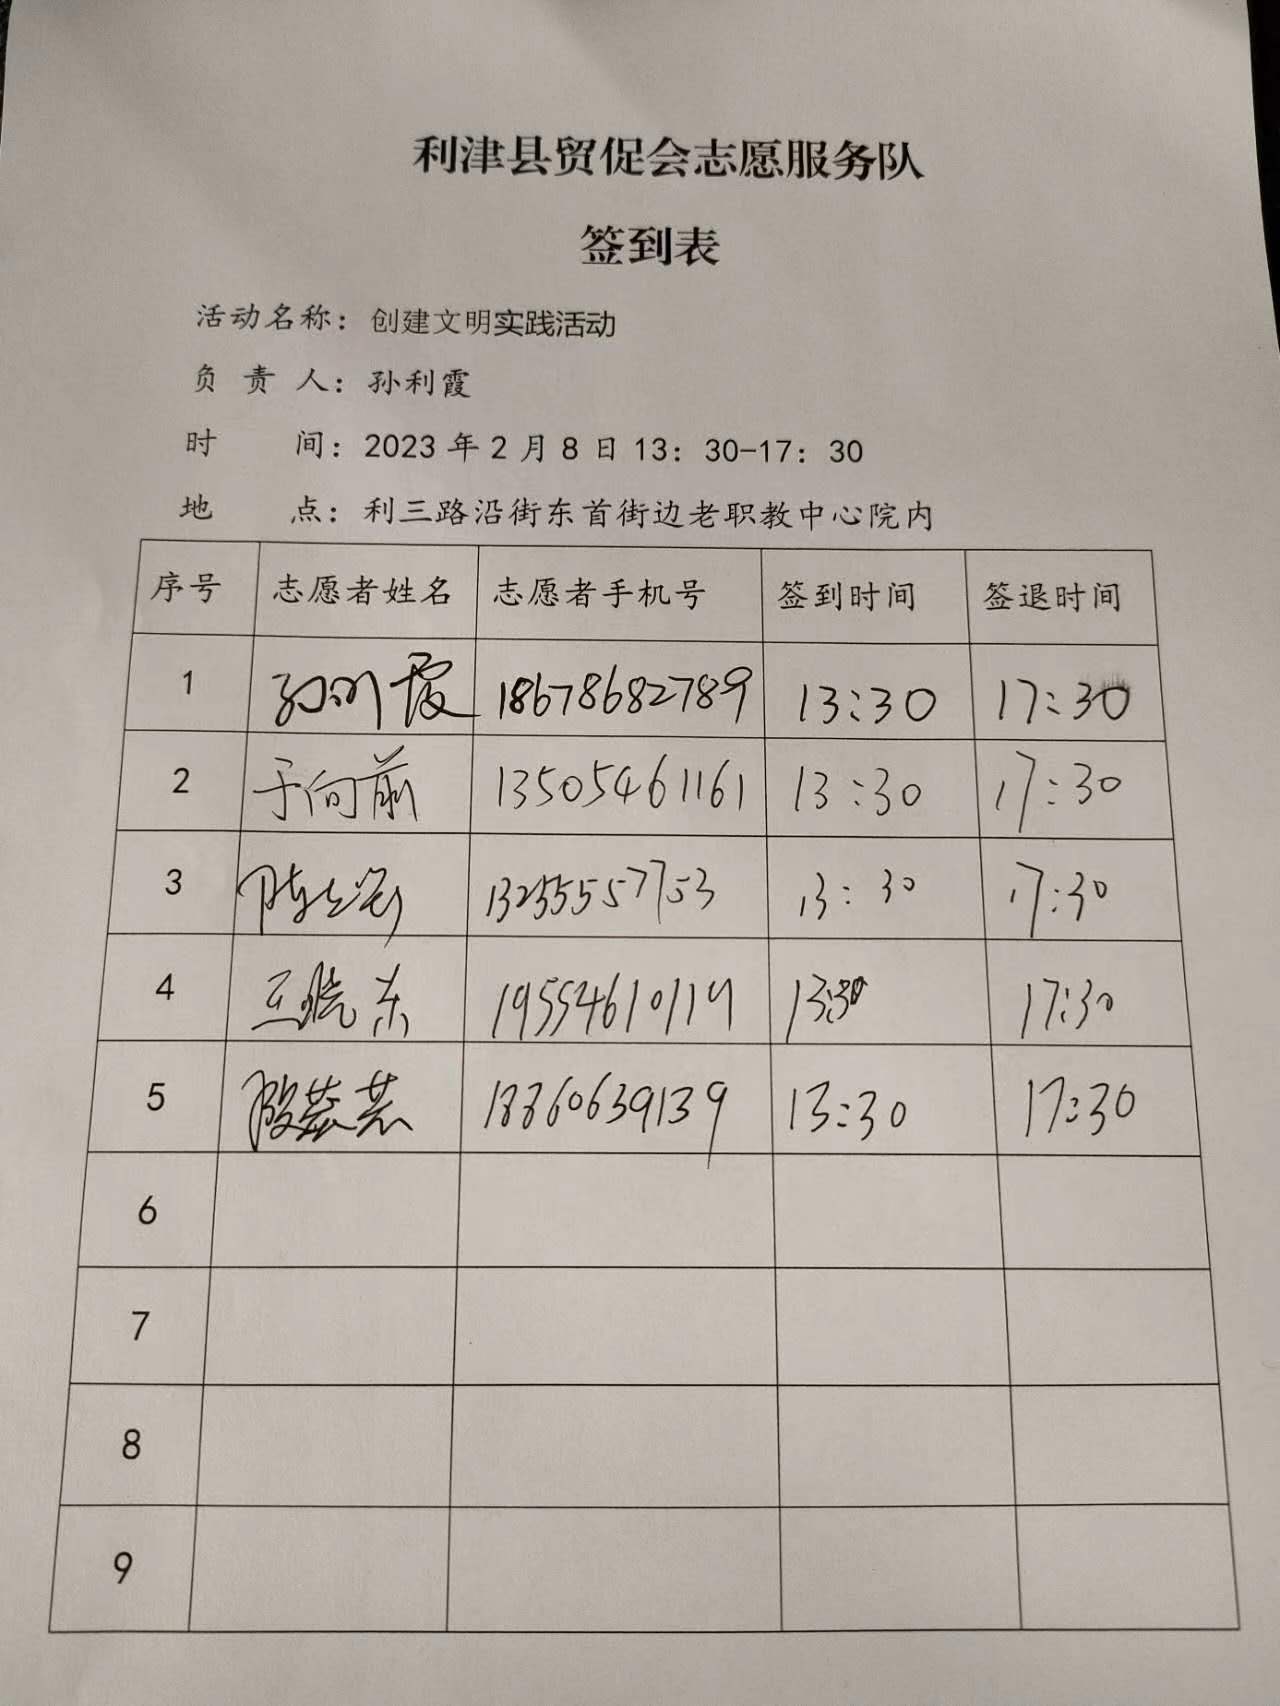 利津县贸促会志愿服务队
签到表
活动名称：创建文明实践活动
负 责 人：孙利霞
时 间：2023 年 2 月 8 日 13：30-17：30
地 点：利三路沿街东首街边老职教中心院内
序号 志愿者姓名 志愿者手机号 签到时间 签退时间
1 孙利霞 18678682789 13:30 17:30
2 于向前 13505461161 13:30 17:30
3 13:30 17:30
4 王晓东 19554610119 13:30 17:30
5 18860639139 13:30 17:30
6
7
8
9